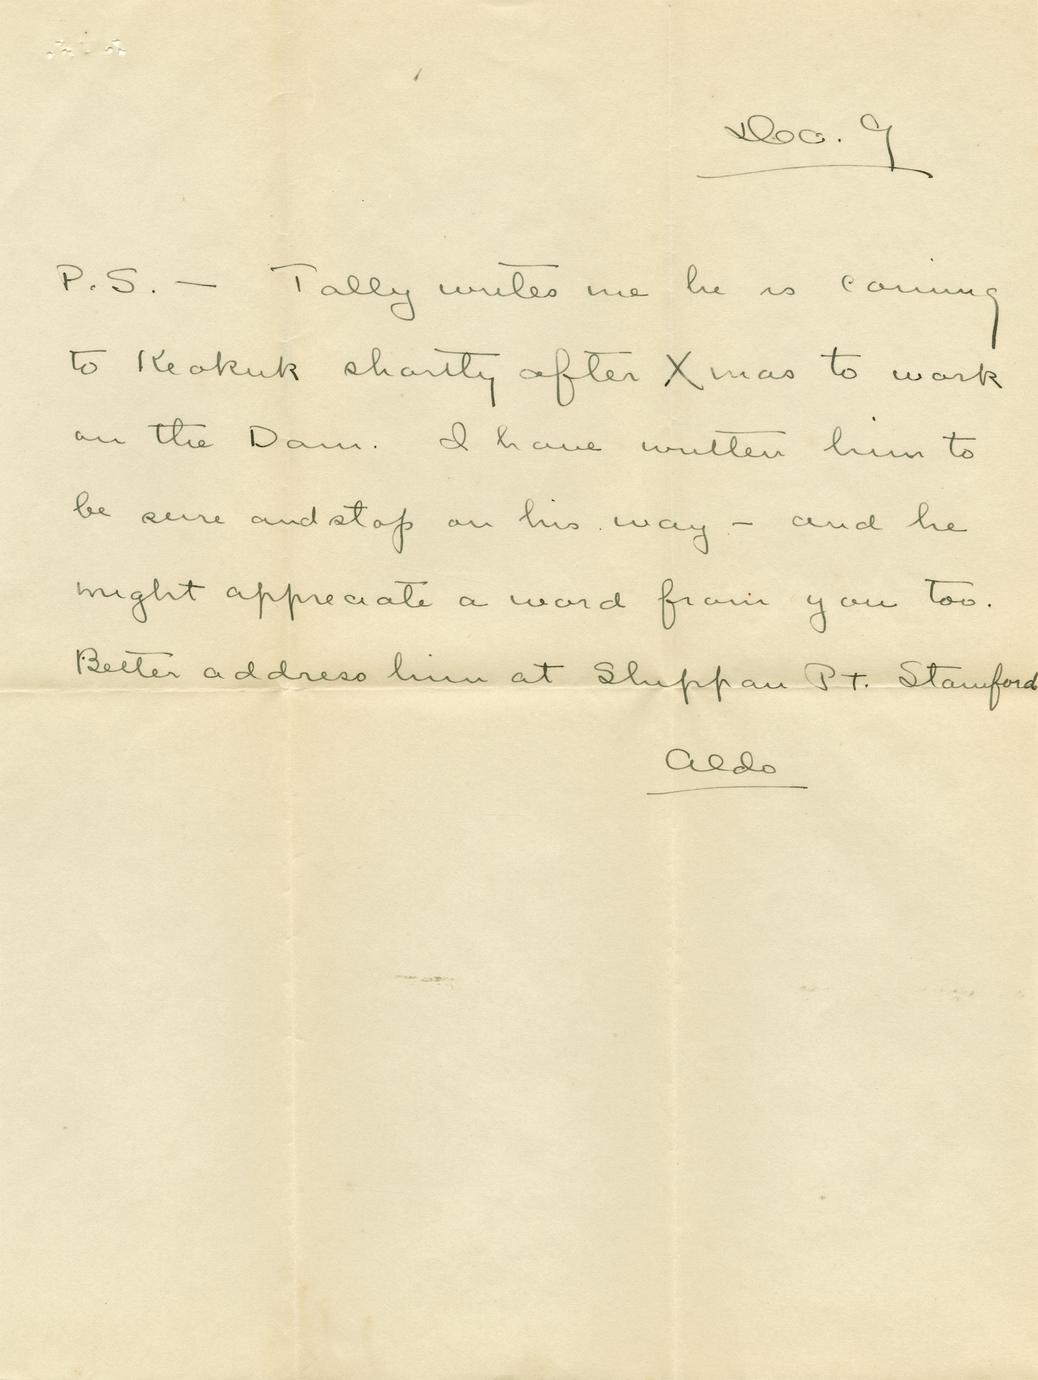 Dec. 9
P.S. — Tally writes me he is coming
to Keokuk shortly after Xmas to work
on the Dam. I have written him to
be sure and stop on his way – and he
might appreciate a word from you too.
Better address him at Shippan Pt. Stamford
Aldo